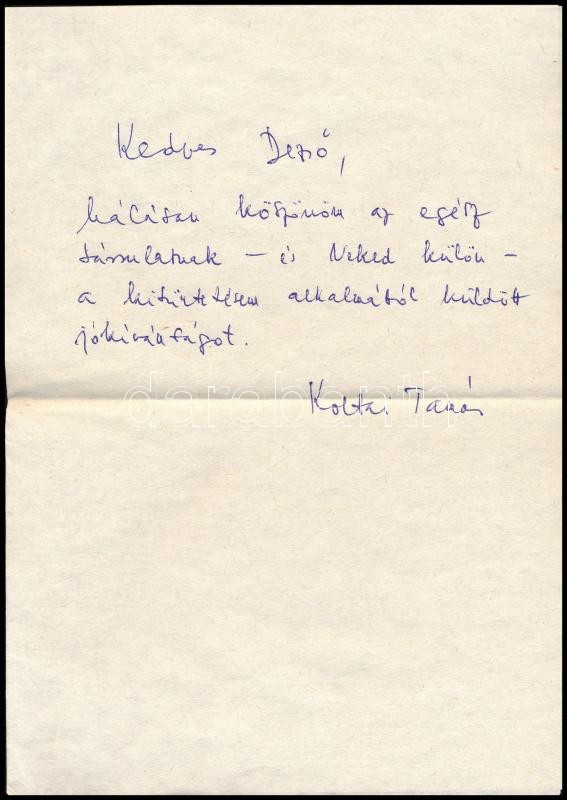 Kedves Dezső,
hálásan köszönöm az egész
társulatnak – és Neked külön –
a kitüntetésem alkalmából küldött
jókívánságot.
darabanth
Koltai Tamás